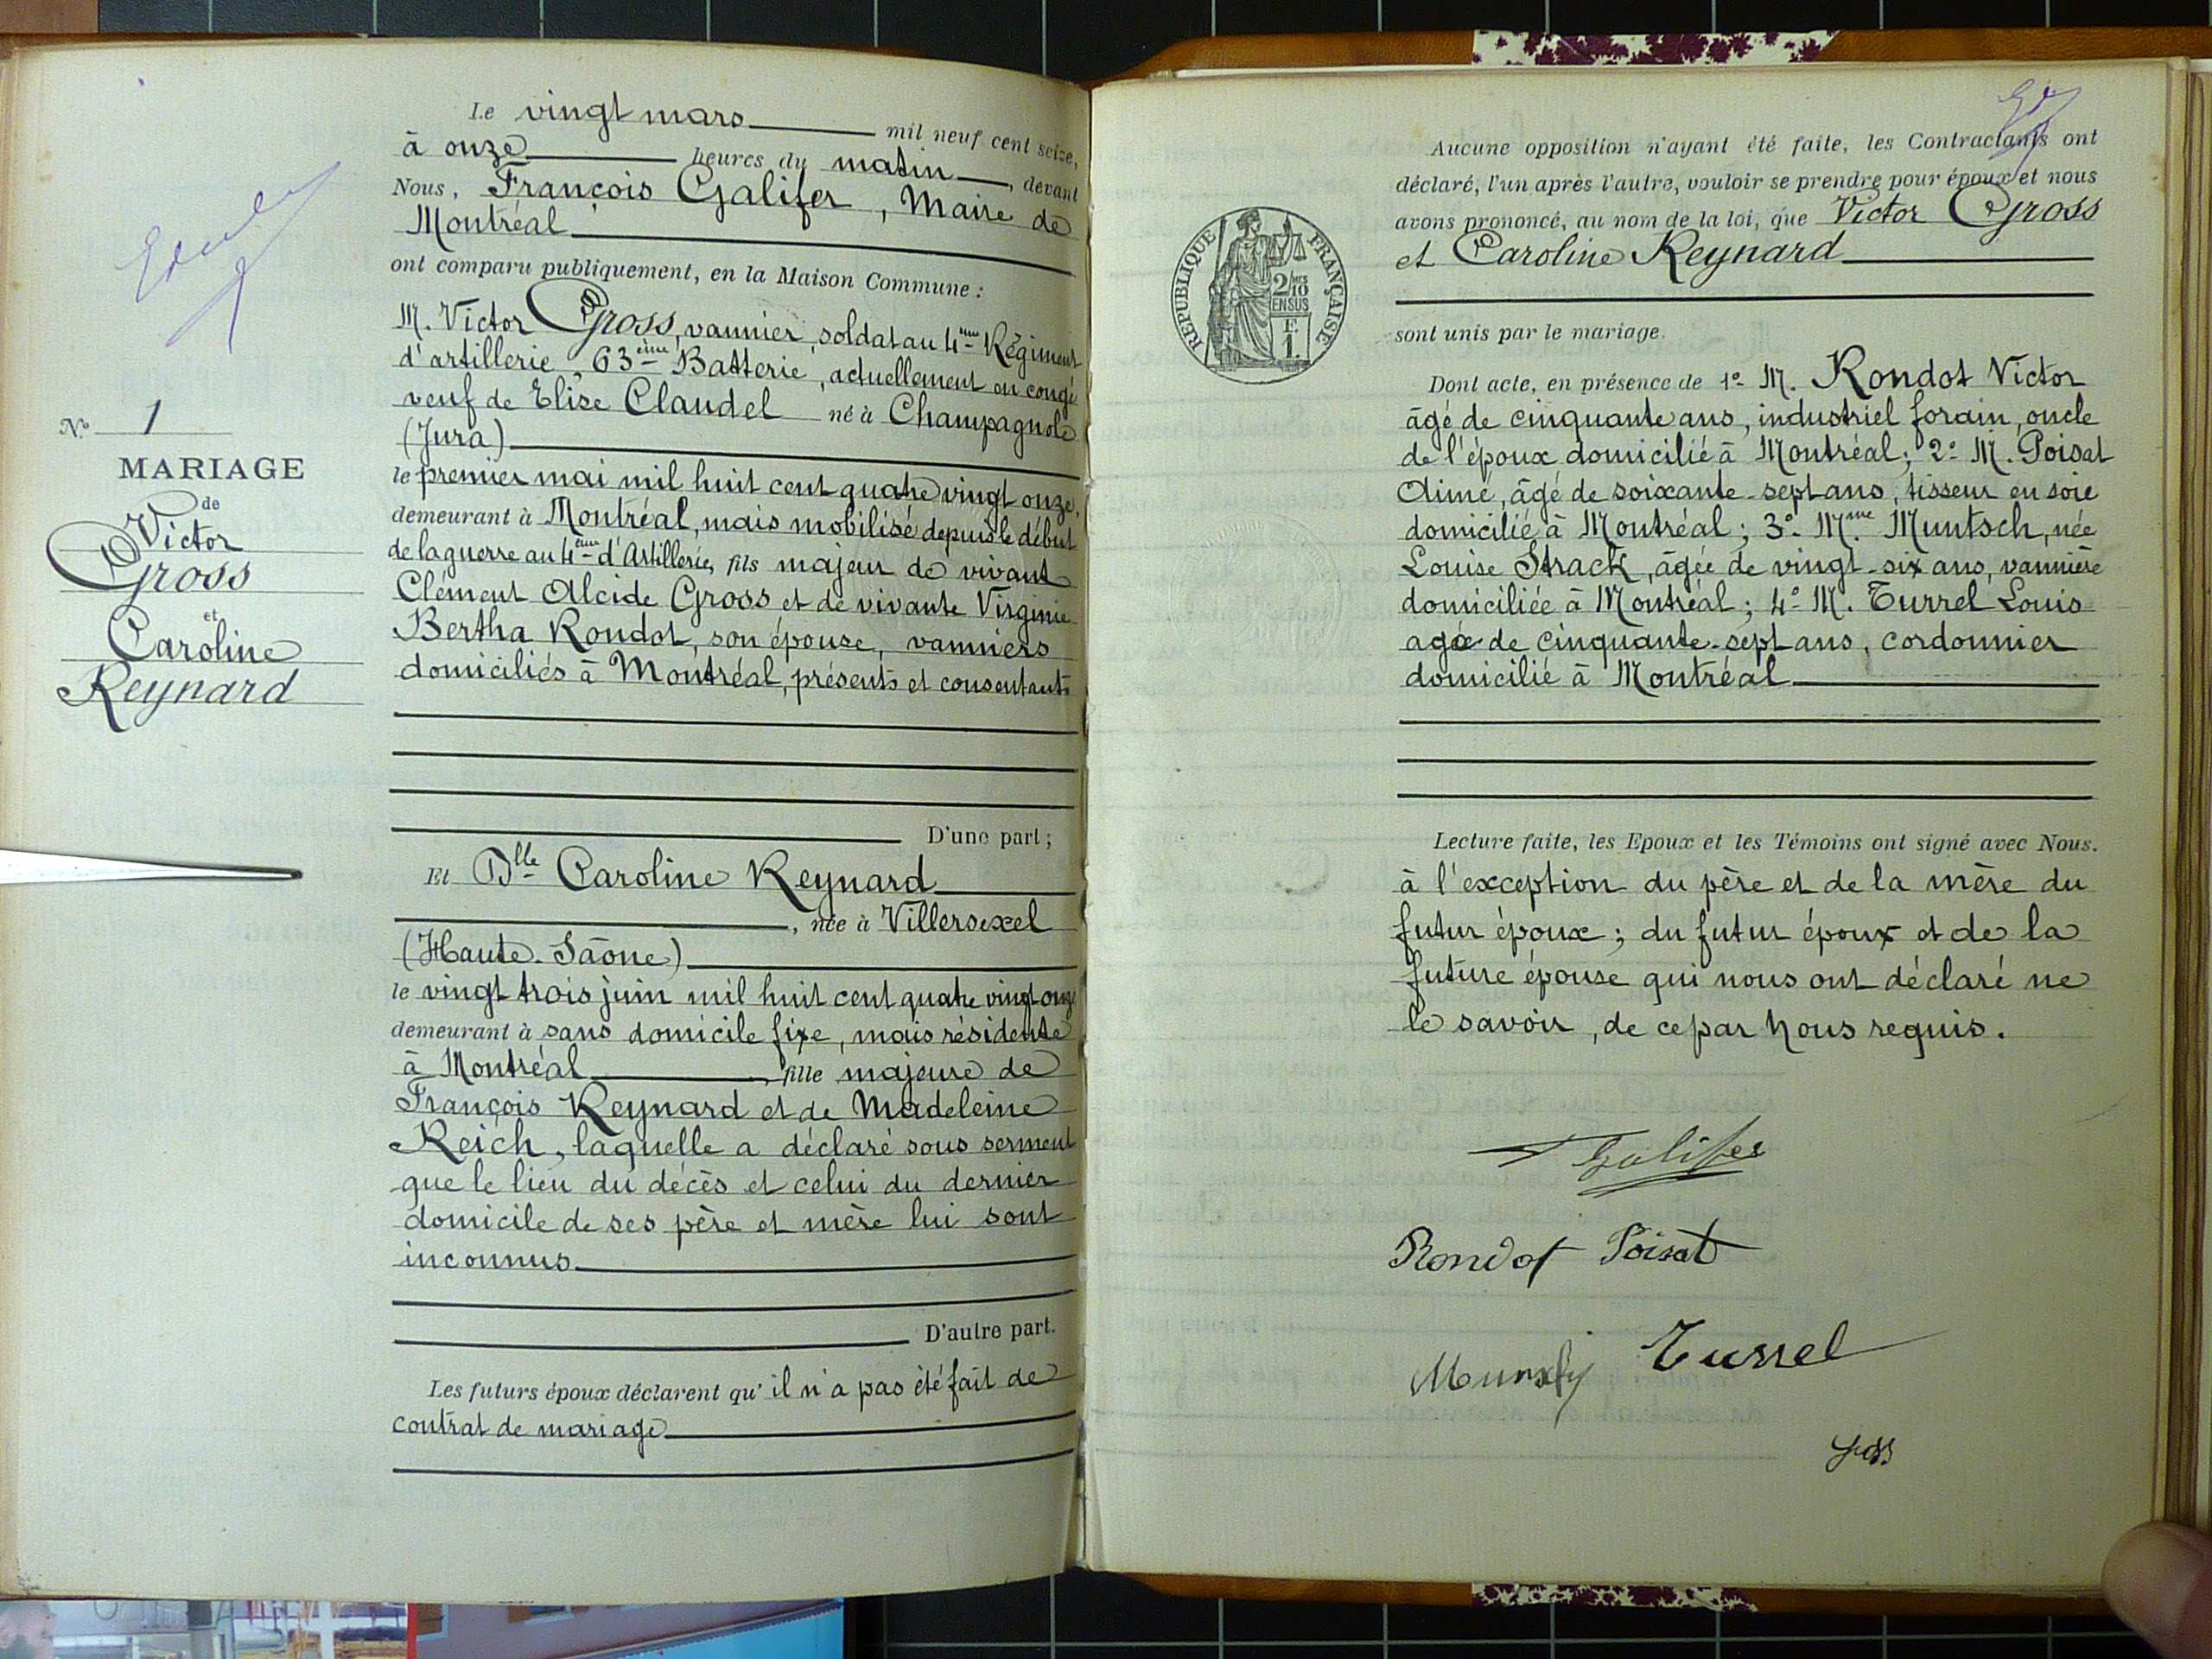 Le vingt mars mil neuf cent seize,
à onze heures du matin, devant
Nous, François Galifer, Maire de
Montréal
ont comparu publiquement, en la Maison Commune :
M. Victor Gross, vannier, soldat au 4ème Régiment
d'artillerie, 63ème Batterie, actuellement en congé
veuf de Elise Claudel né à Champagnole
(Jura)
le premier mai mil huit cent quatre vingt onze,
demeurant à Montréal, mais mobilisé depuis le début
de la guerre au 4ème d'Artillerie, fils majeur de vivant
Clément Alcide Gross et de vivante Virginie
Bertha Rondot, son épouse, vanniers
domiciliés à Montréal, présents et consentants
D'une part ;
Et Dlle Caroline Reynard
, née à Villersexel
(Haute-Saône)
le vingt trois juin mil huit cent quatre vingt onze
demeurant à sans domicile fixe, mais résidente
à Montréal, fille majeure de
François Reynard et de Madeleine
Reich, laquelle a déclaré sous serment
que le lieu du décès et celui du dernier
domicile de ses père et mère lui sont
inconnus
D'autre part.
Les futurs époux déclarent qu'il n'a pas été fait de
contrat de mariage
N° 1
MARIAGE
de
Victor
Gross
et
Caroline
Reynard
RÉPUBLIQUE FRANÇAISE
2/10
EN SUS
F.
1.
Aucune opposition n'ayant été faite, les Contractants ont
déclaré, l'un après l'autre, vouloir se prendre pour époux et nous
avons prononcé, au nom de la loi, que Victor Gross
et Caroline Reynard
sont unis par le mariage.
Dont acte, en présence de 1° M. Rondot Victor
âgé de cinquante ans, industriel forain, oncle
de l'époux domicilié à Montréal ; 2° M. Poisat
Aimé, âgé de soixante-sept ans, tisseur en soie
domicilié à Montréal ; 3° Mme Muntsch, née
Louise Strack, âgée de vingt-six ans, vannière
domiciliée à Montréal ; 4° M. Turrel Louis
agé de cinquante-sept ans, cordonnier
domicilié à Montréal
Lecture faite, les Epoux et les Témoins ont signé avec Nous.
à l'exception du père et de la mère du
futur époux ; du futur époux et de la
future épouse qui nous ont déclaré ne
le savoir, de ce par Nous requis.
Galifer
Rondot Poisat
Turrel